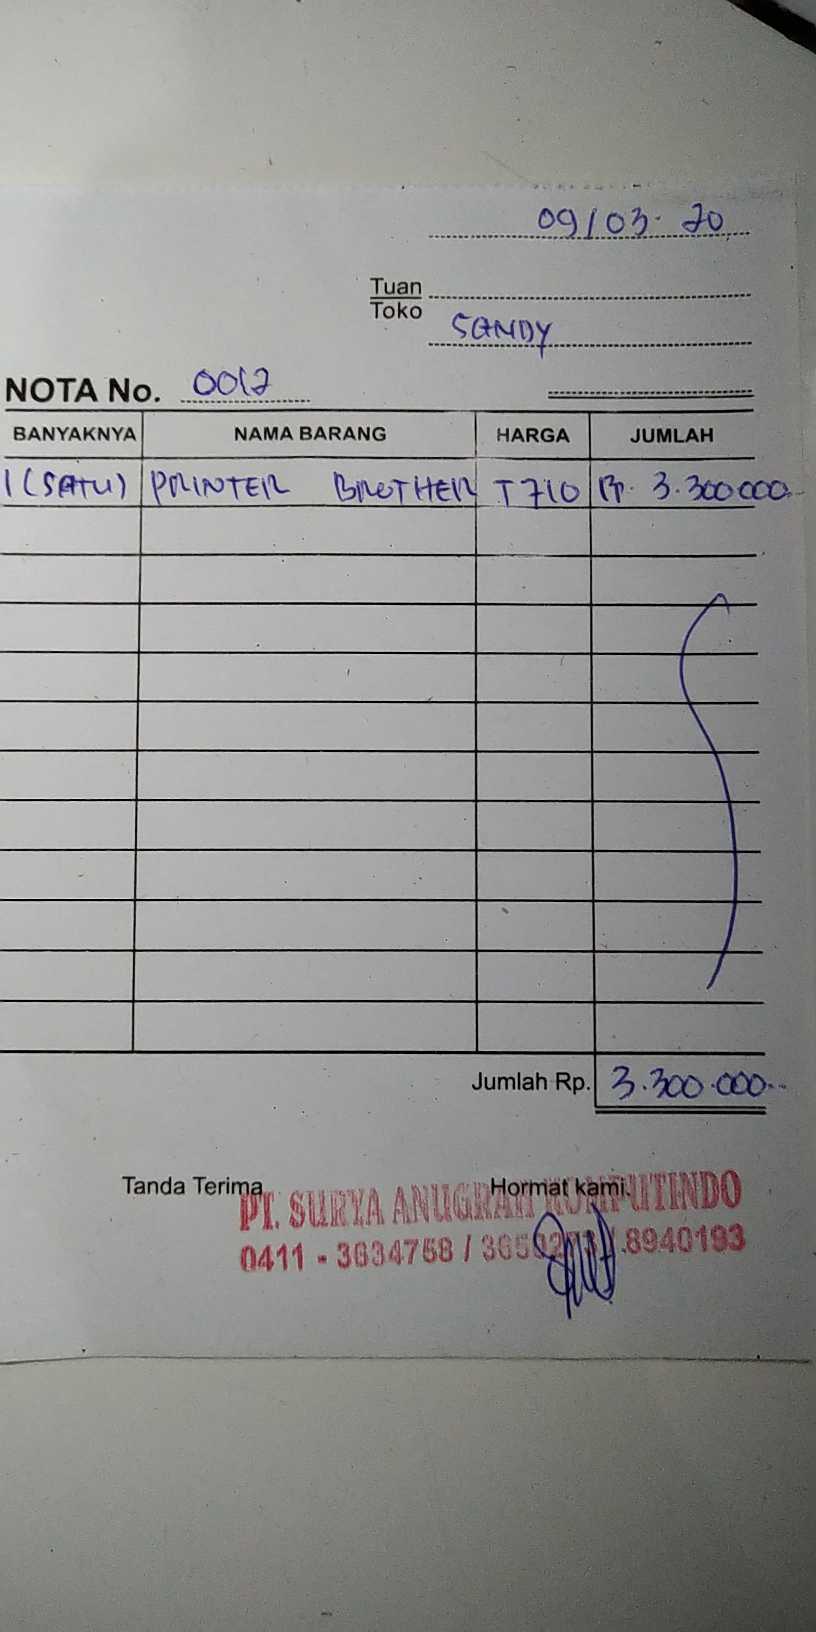 09/03-20
Tuan
Toko
SANDY
NOTA No. 0012
BANYAKNYA NAMA BARANG HARGA JUMLAH
1 (SATU) PRINTER BROTHER T710 Rp. 3.300.000.-
Jumlah Rp. 3.300.000.-
Tanda Terima Hormat kami.
PT. SURYA ANUGRAH KOMPUTINDO
0411 - 3634758 / 8940193